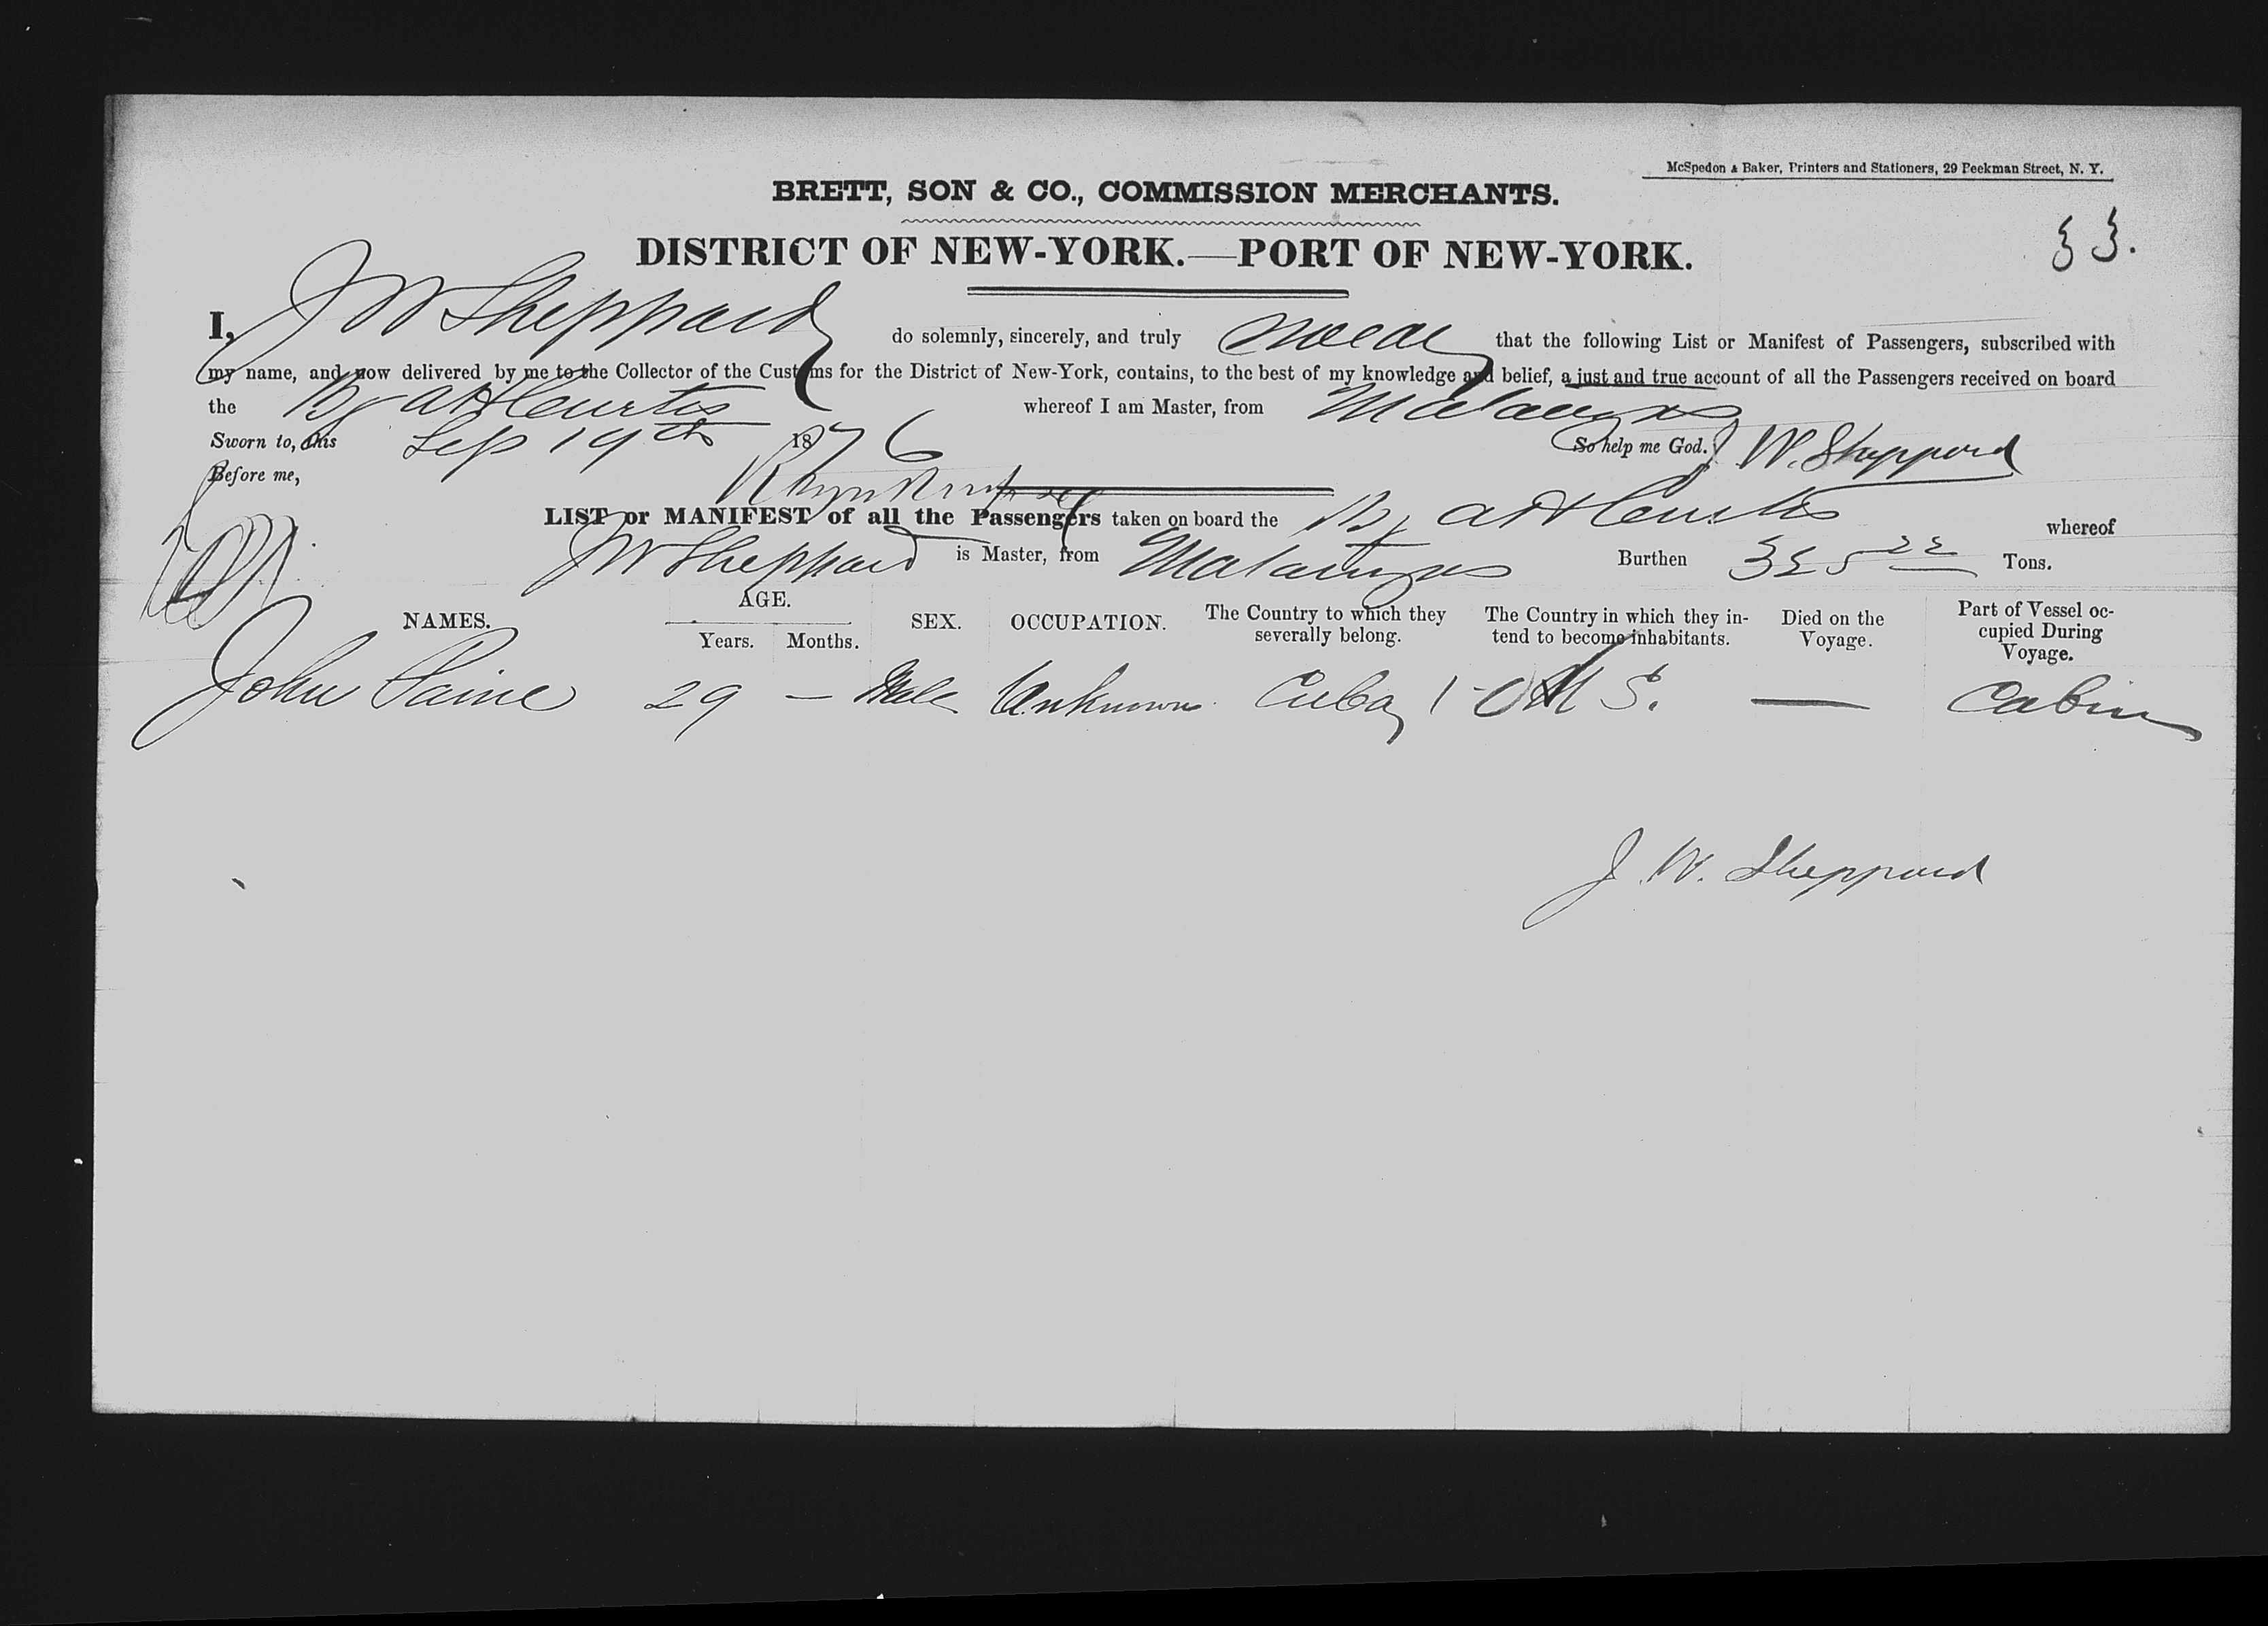 McSpedon & Baker, Printers and Stationers, 29 Peekman Street, N. Y.
BRETT, SON & CO., COMMISSION MERCHANTS.
33.
DISTRICT OF NEW-YORK.—PORT OF NEW-YORK.
I, J W Sheppard do solemnly, sincerely, and truly swear that the following List or Manifest of Passengers, subscribed with
my name, and now delivered by me to the Collector of the Customs for the District of New-York, contains, to the best of my knowledge and belief, a just and true account of all the Passengers received on board
the Bg A H Curtis whereof I am Master, from Matanzas
Sworn to, this Sep 19th 1876 So help me God. J. W. Sheppard
Before me,
LIST or MANIFEST of all the Passengers taken on board the Bg A H Curtis whereof
J W Sheppard is Master, from Matanzas Burthen Tons.
NAMES. AGE. Years. Months. SEX. OCCUPATION. The Country to which they severally belong. The Country in which they intend to become inhabitants. Died on the Voyage. Part of Vessel occupied During Voyage.
John Paine 29 — Male Unknown Cuba U S. — Cabin
J. W. Sheppard